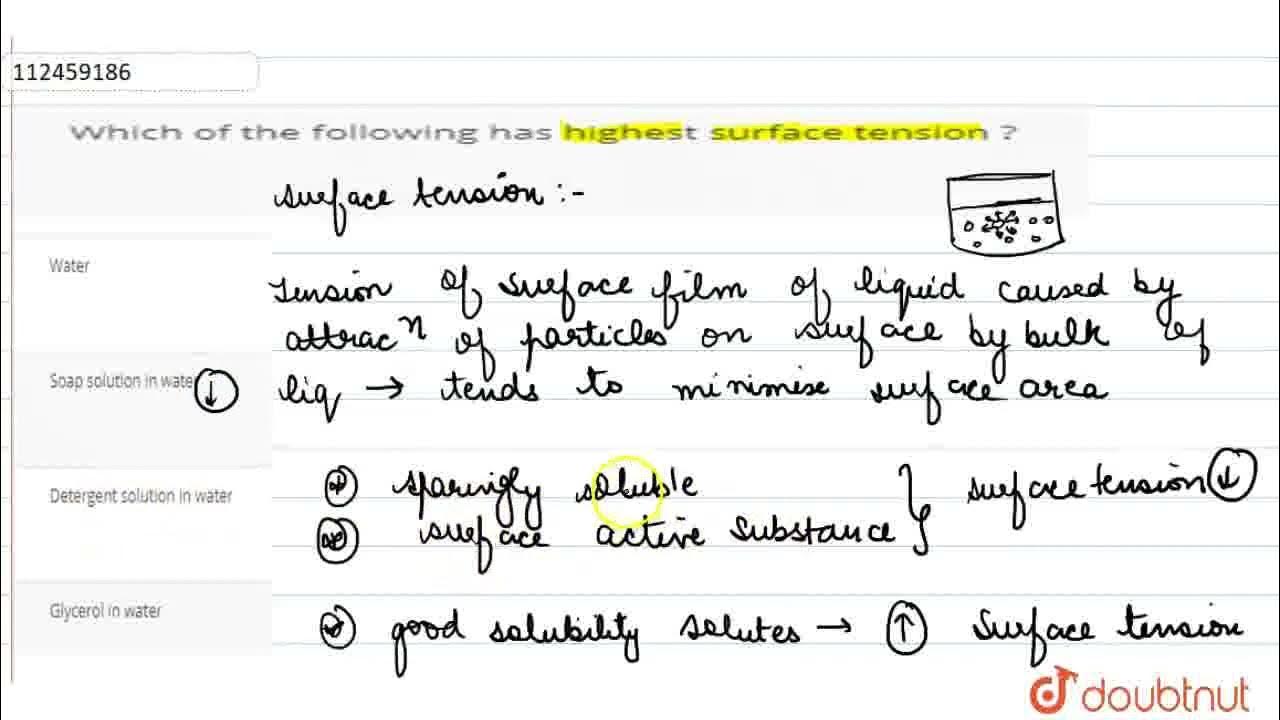 112459186
Which of the following has highest surface tension ?
surface tension :-
Water
tension of surface film of liquid caused by
attracⁿ of particles on surface by bulk of
Soap solution in wate ↓
liq → tends to minimise surface area
sparingly soluble
surface tension ↓
Detergent solution in water
surface active substance
Glycerol in water
good solubility solutes → ↑ surface tension
doubtnut